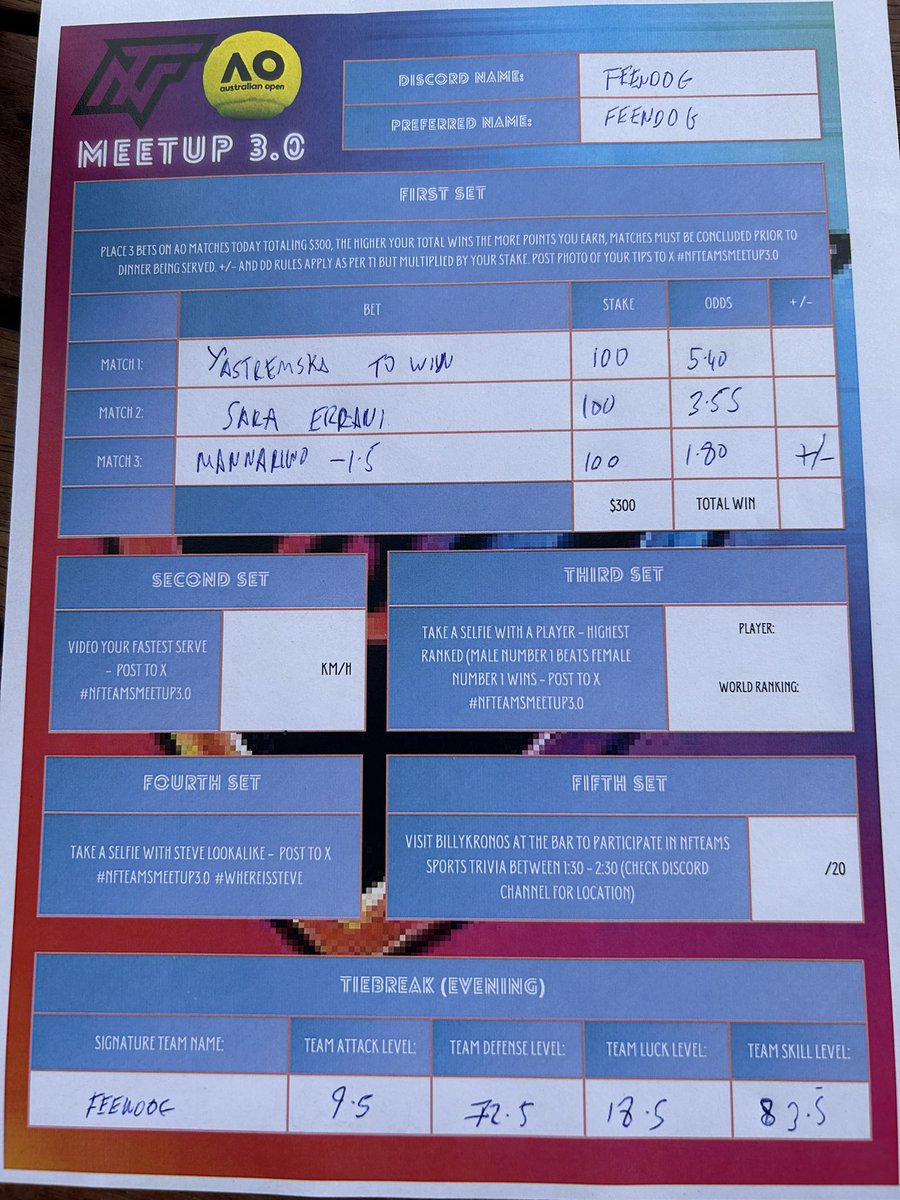 NTF
AO
australian open
MEETUP 3.0
DISCORD NAME: FEENDOG
PREFERRED NAME: FEENDOG
FIRST SET
PLACE 3 BETS ON AO MATCHES TODAY TOTALING $300, THE HIGHER YOUR TOTAL WINS THE MORE POINTS YOU EARN, MATCHES MUST BE CONCLUDED PRIOR TO
DINNER BEING SERVED. +/- AND DD RULES APPLY AS PER T1 BUT MULTIPLIED BY YOUR STAKE. POST PHOTO OF YOUR TIPS TO X #NFTEAMSMEETUP3.0
BET STAKE ODDS +/-
MATCH 1: YASTREMSKA TO WIN 100 5.40
MATCH 2: SARA ERRANI 100 3.55
MATCH 3: MANNARINO -1.5 100 1.80 +/-
$300 TOTAL WIN
SECOND SET
VIDEO YOUR FASTEST SERVE
- POST TO X
#NFTEAMSMEETUP3.0
KM/H
THIRD SET
TAKE A SELFIE WITH A PLAYER - HIGHEST
RANKED (MALE NUMBER 1 BEATS FEMALE
NUMBER 1 WINS - POST TO X
#NFTEAMSMEETUP3.0
PLAYER:
WORLD RANKING:
FOURTH SET
TAKE A SELFIE WITH STEVE LOOKALIKE - POST TO X
#NFTEAMSMEETUP3.0 #WHEREISSTEVE
FIFTH SET
VISIT BILLYKRONOS AT THE BAR TO PARTICIPATE IN NFTEAMS
SPORTS TRIVIA BETWEEN 1:30 - 2:30 (CHECK DISCORD
CHANNEL FOR LOCATION)
/20
TIEBREAK (EVENING)
SIGNATURE TEAM NAME: TEAM ATTACK LEVEL: TEAM DEFENSE LEVEL: TEAM LUCK LEVEL: TEAM SKILL LEVEL:
FEENDOG 9.5 72.5 18.5 83.5